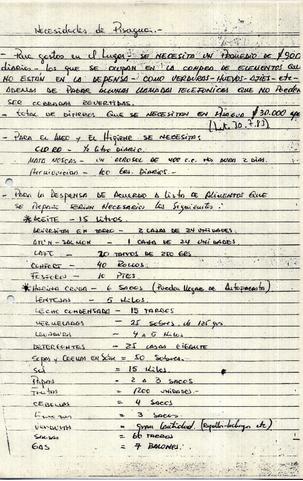 Necesidades de Pisagua.
- Para gastos en el Lugar - SE NECESITA UN PROMEDIO DE $ 900
diarios. LOS QUE SE OCUPAN EN LA COMPRA DE ELEMENTOS QUE
NO ESTAN EN LA DEPENSA - COMO VERDURAS - HUEVOS - - etc -
ADEMAS DE PAGAR ALGUNAS LLAMADAS TELEFONICAS QUE NO PUEDEN
SER COBRADAS REVERTIDAS.
- TOTAL DE DINEROS QUE SE NECESITAN EN PISAGUA $ 30.000
- PARA EL ASEO Y EL HIGIENE SE NECESITA
CLORO - ½ litro DIARIO.
MATA MOSCAS - UN AEROSOL DE 400 C.C. DURA 2 DIAS.
- 100 GRS. DIARIOS.-
- PARA LA DESPENSA DE ACUERDO A LISTA DE ALIMENTOS QUE
SE SERIAN NECESARIOS LOS Siguientes:
* ACEITE - 15 LITROS.
EN TARRO - 2 CAJAS DE 24 UNIDADES.
ATUN - SALMON - 1 CAJA DE 24 UNIDADES
CAFE - 20 TARROS DE 250 GRS
CONFORT - 40 ROLLOS.
- 10 PTES.
* HARINA CRUDA - 6 SACOS (Pueden llegar de Antofagasta)
LENTEJAS - 5 KILOS.
LECHE CONDENSADA - 15 TARROS
MERMELADAS - 25 Sobres. de 125 grs
LEVADURA - 4 a 5 Kilos.
DETERGENTES - 25 CAJAS GIGANTE
Sopas y CREMAS EN Sobre = 50 Sobres.
Sal = 15 Kilos.
Papas = 2 a 3 SACOS
Frutas = 1200 UNIDADES.-
CEBOLLAS = 4 SACOS
= 3 SACOS
VERDURAS = gran Cantidad (Repollo-lechugas etc)
SALSAS = 60 TARROS
GAS = 7 BALONES.